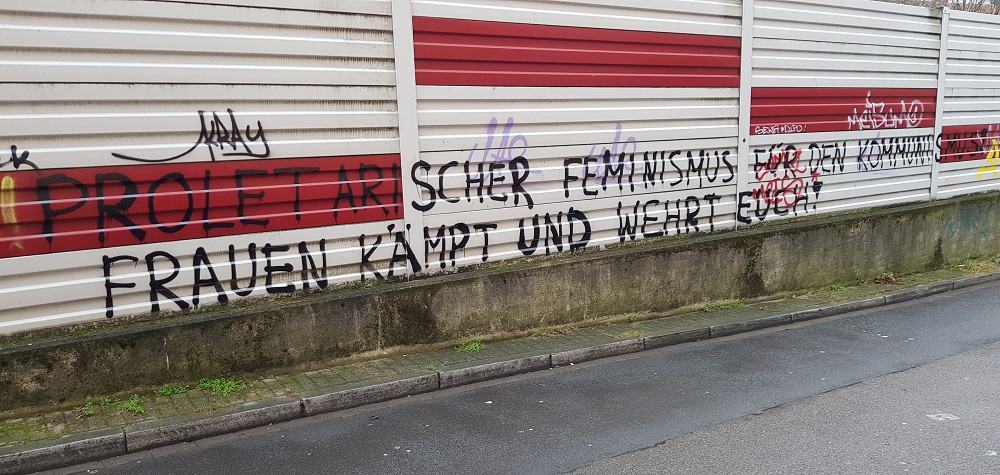 KRAY
PROLETARISCHER FEMINISMUS FÜR DEN KOMMUNISMUS
FRAUEN KÄMPT UND WEHRT EUCH!